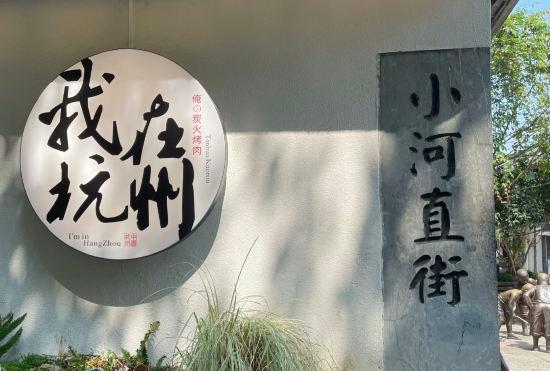 我在
杭州
俺の炭火烤肉
I'm in
HangZhou
中國
杭州
小河直街